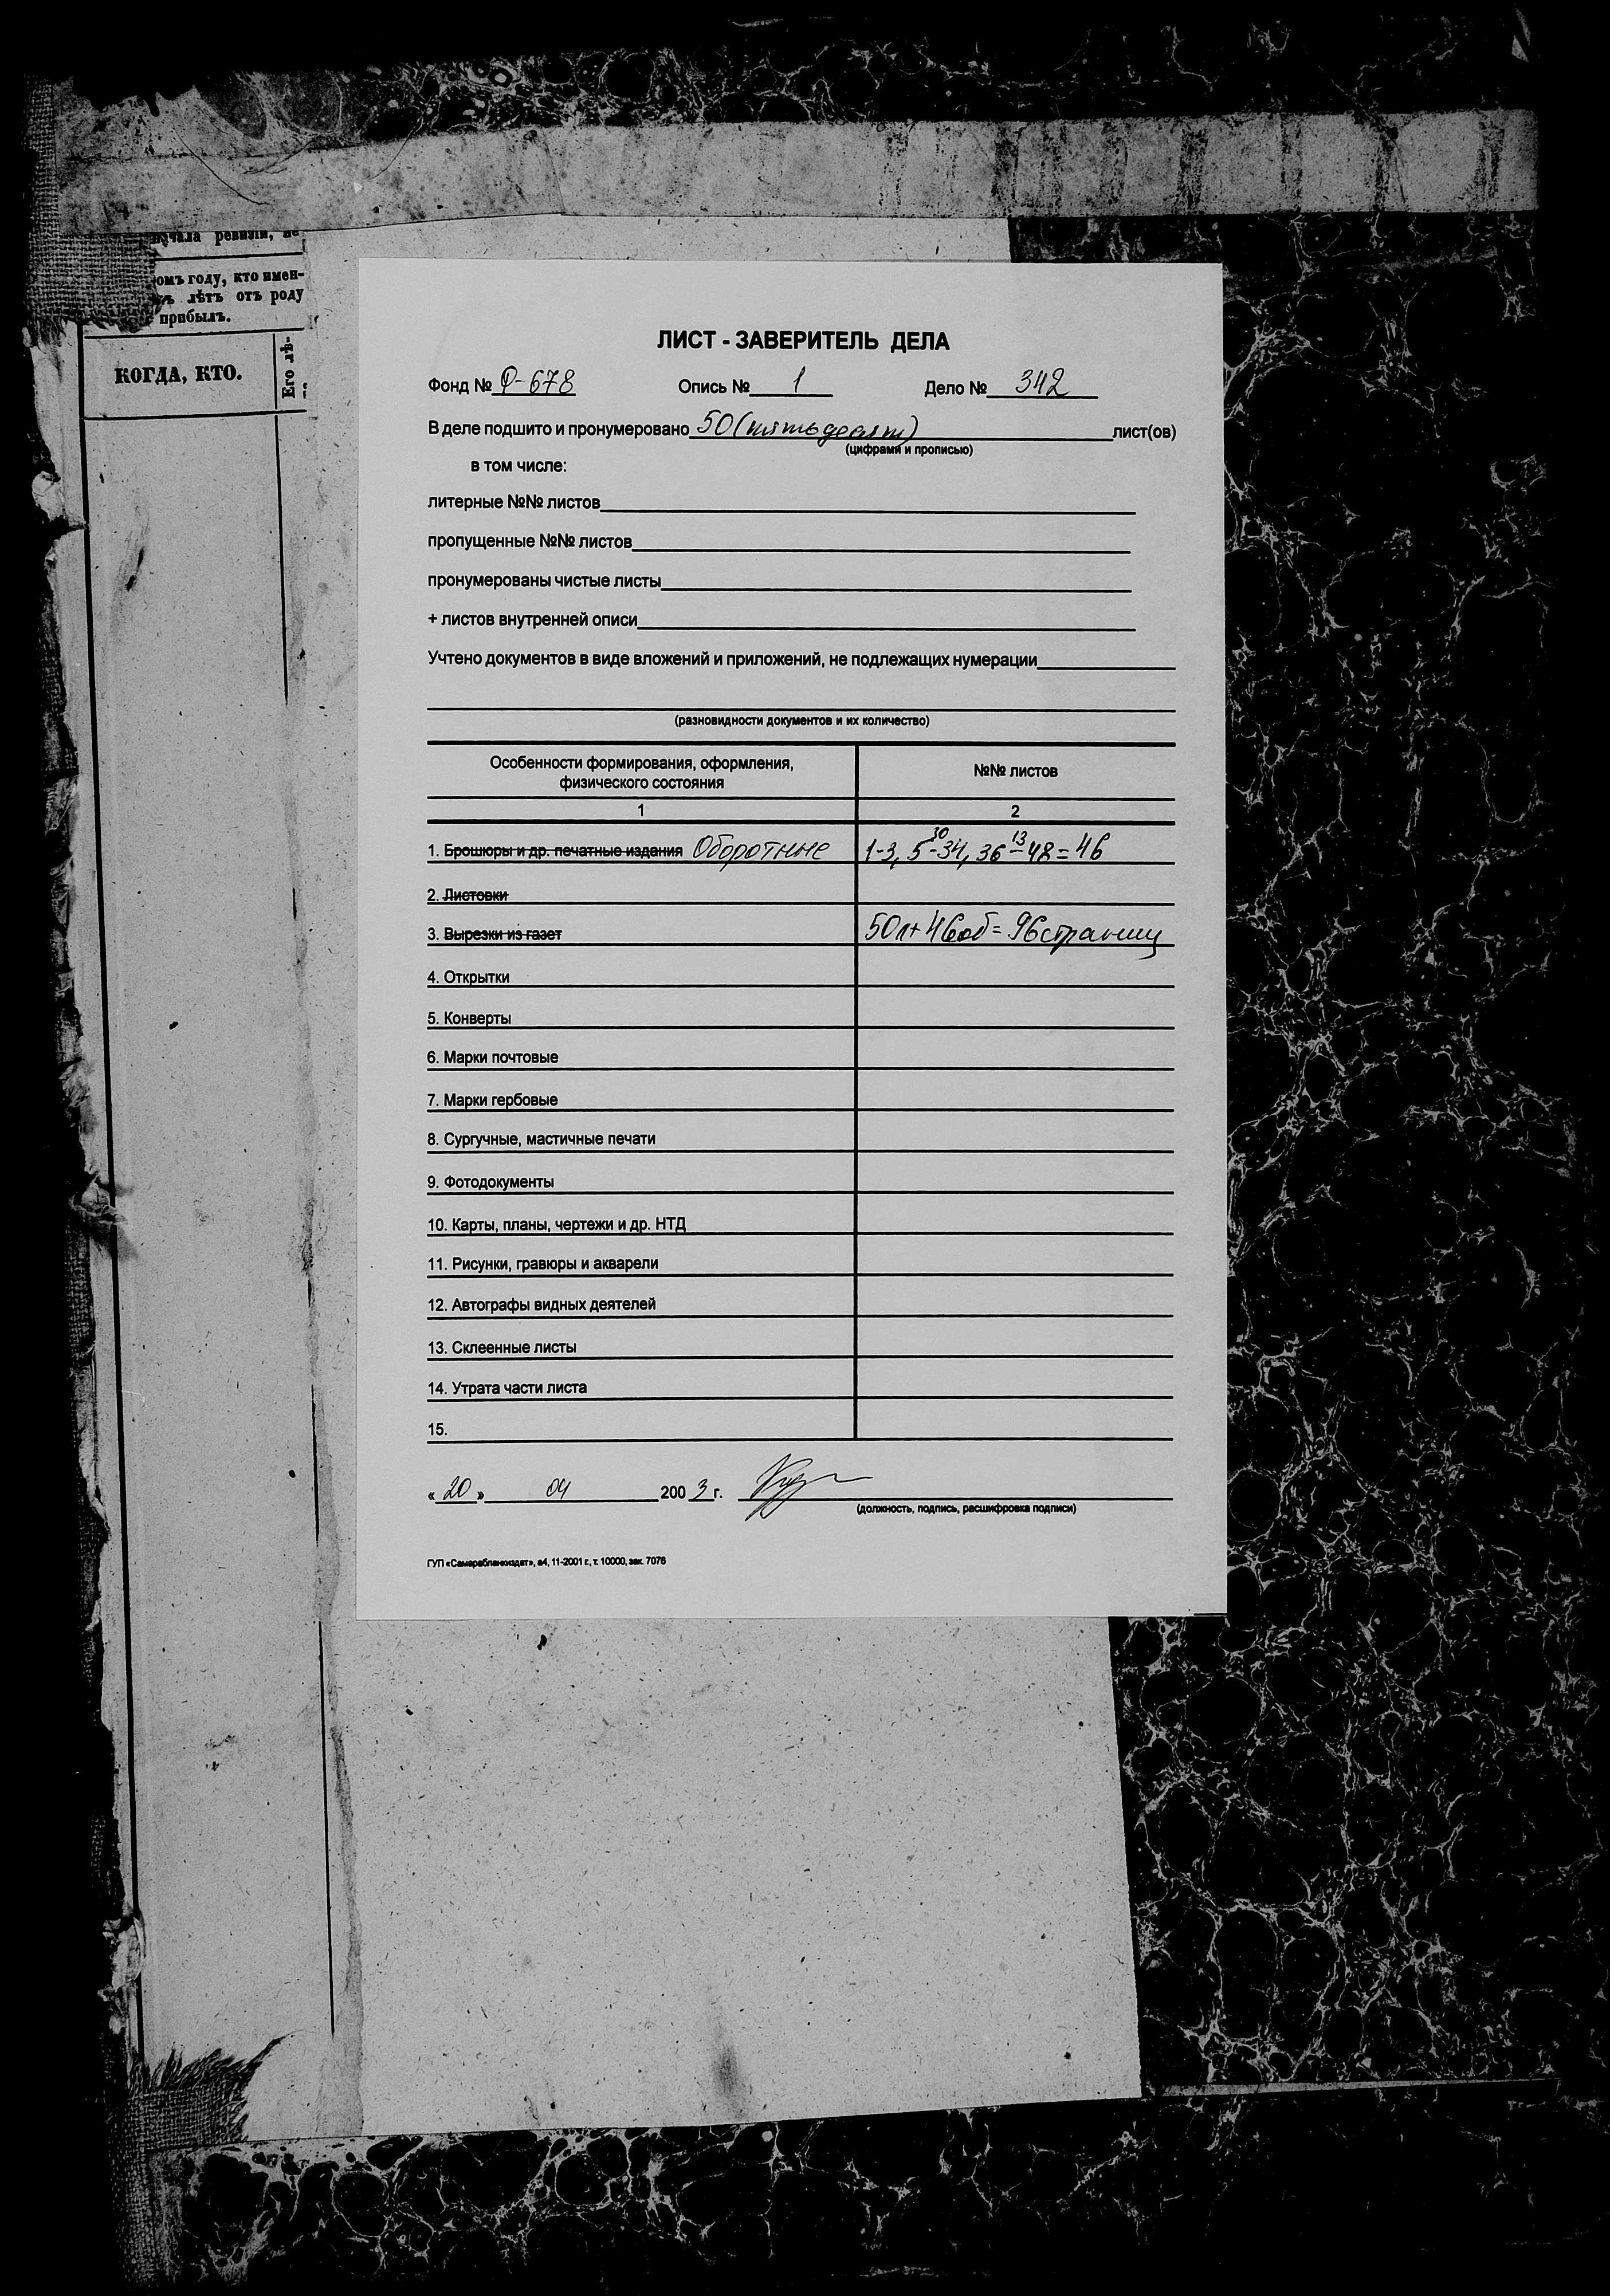 нучала ревизіи, не
омъ году, кто имен-
лѣтъ отъ роду
прибылъ.
КОГДА, КТО.
Его лѣ-
ЛИСТ - ЗАВЕРИТЕЛЬ ДЕЛА
Фонд № Ф-678 Опись № 1 Дело № 342
В деле подшито и пронумеровано 50 (пятьдесят) лист(ов)
(цифрами и прописью)
в том числе:
литерные №№ листов
пропущенные №№ листов
пронумерованы чистые листы
+ листов внутренней описи
Учтено документов в виде вложений и приложений, не подлежащих нумерации
(разновидности документов и их количество)
Особенности формирования, оформления,
физического состояния
№№ листов
1 2
30 13
1. Брошюры и др. печатные издания Оборотные 1-3, 5-34, 36-48=46
2. Листовки
3. Вырезки из газет 50л+46об=96страниц
4. Открытки
5. Конверты
6. Марки почтовые
7. Марки гербовые
8. Сургучные, мастичные печати
9. Фотодокументы
10. Карты, планы, чертежи и др. НТД
11. Рисунки, гравюры и акварели
12. Автографы видных деятелей
13. Склеенные листы
14. Утрата части листа
15.
« 20 » 04 200 3 г.
(должность, подпись, расшифровка подписи)
ГУП «Самарабланкиздат», а4, 11-2001 г., т. 10000, зак. 7076